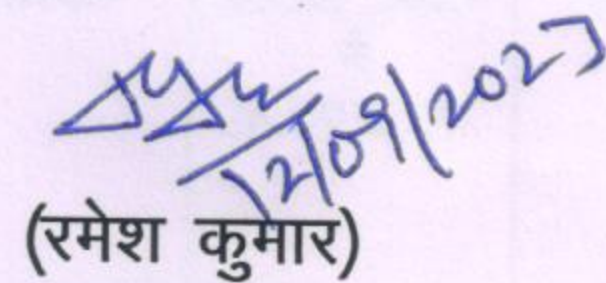 12/09/2023
(रमेश कुमार)